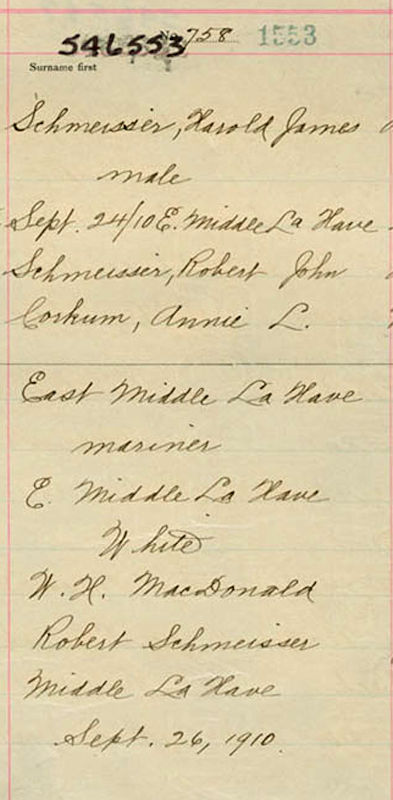 546553 No 758 1553
Surname first
Schmeisser, Harold James
male
Sept. 24/10 E. Middle La Have
Schmeisser, Robert John
Corkum, Annie L.
East Middle La Have
mariner
E. Middle La Have
White
W. H. MacDonald
Robert Schmeisser
Middle La Have
Sept. 26, 1910.